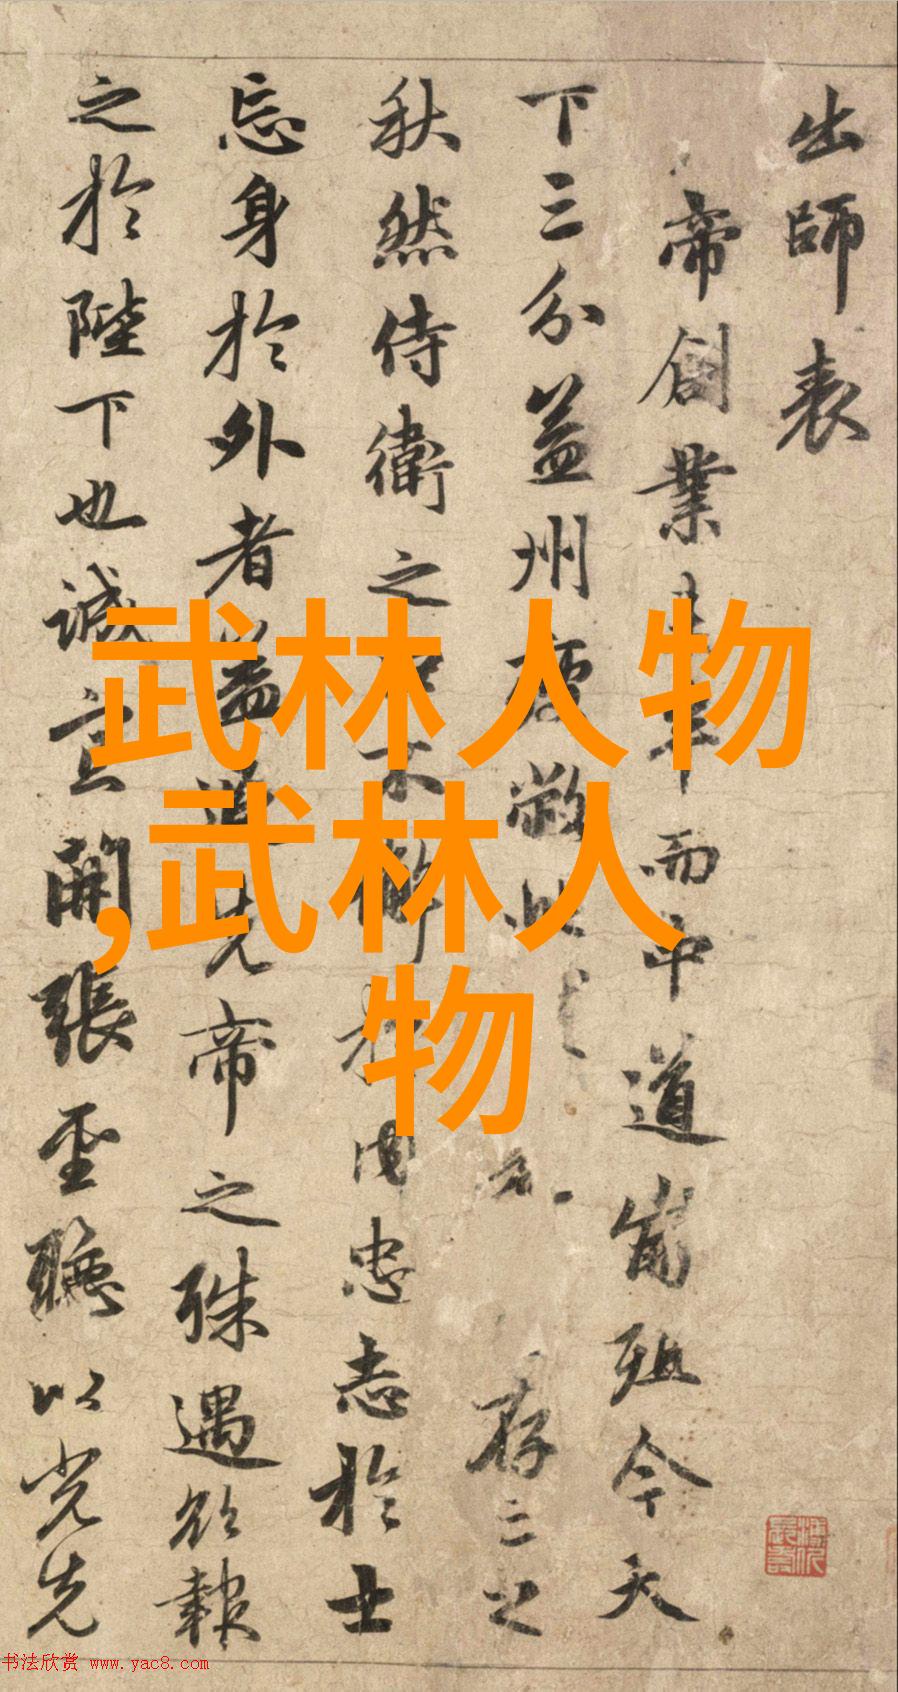 出師表
帝創業半而中道崩殂今天
下三分益州敝此存之
秋然侍衛之臣不懈於内忠志於士
忘身於外者蓋追先帝之殊遇欲報
之於陛下也誠宜開張聖聽以光先
武林人物
,武林人
物
书法欣赏 www.yac8.com